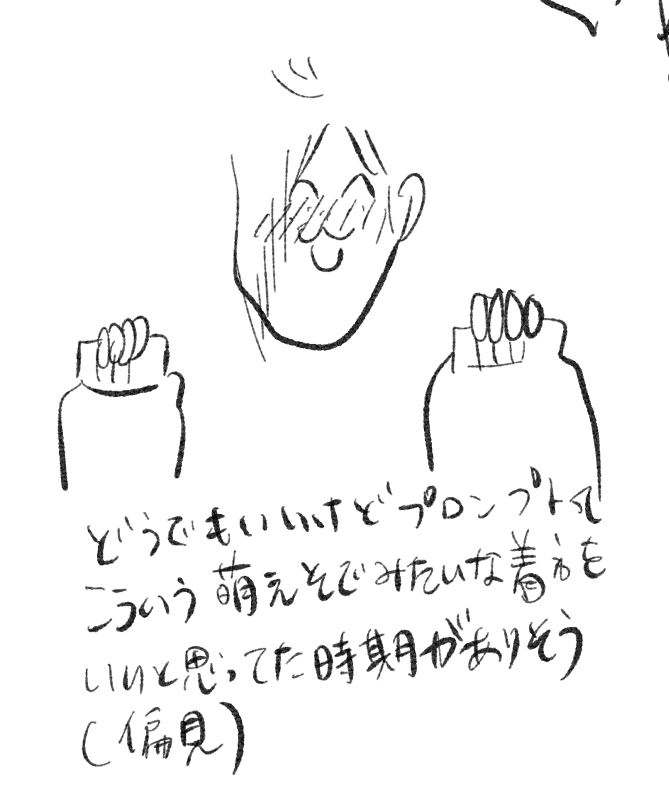 どうでもいいけどプロンプトって
こういう萌えそでみたいな着方を
いいと思ってた時期がありそう
(偏見)